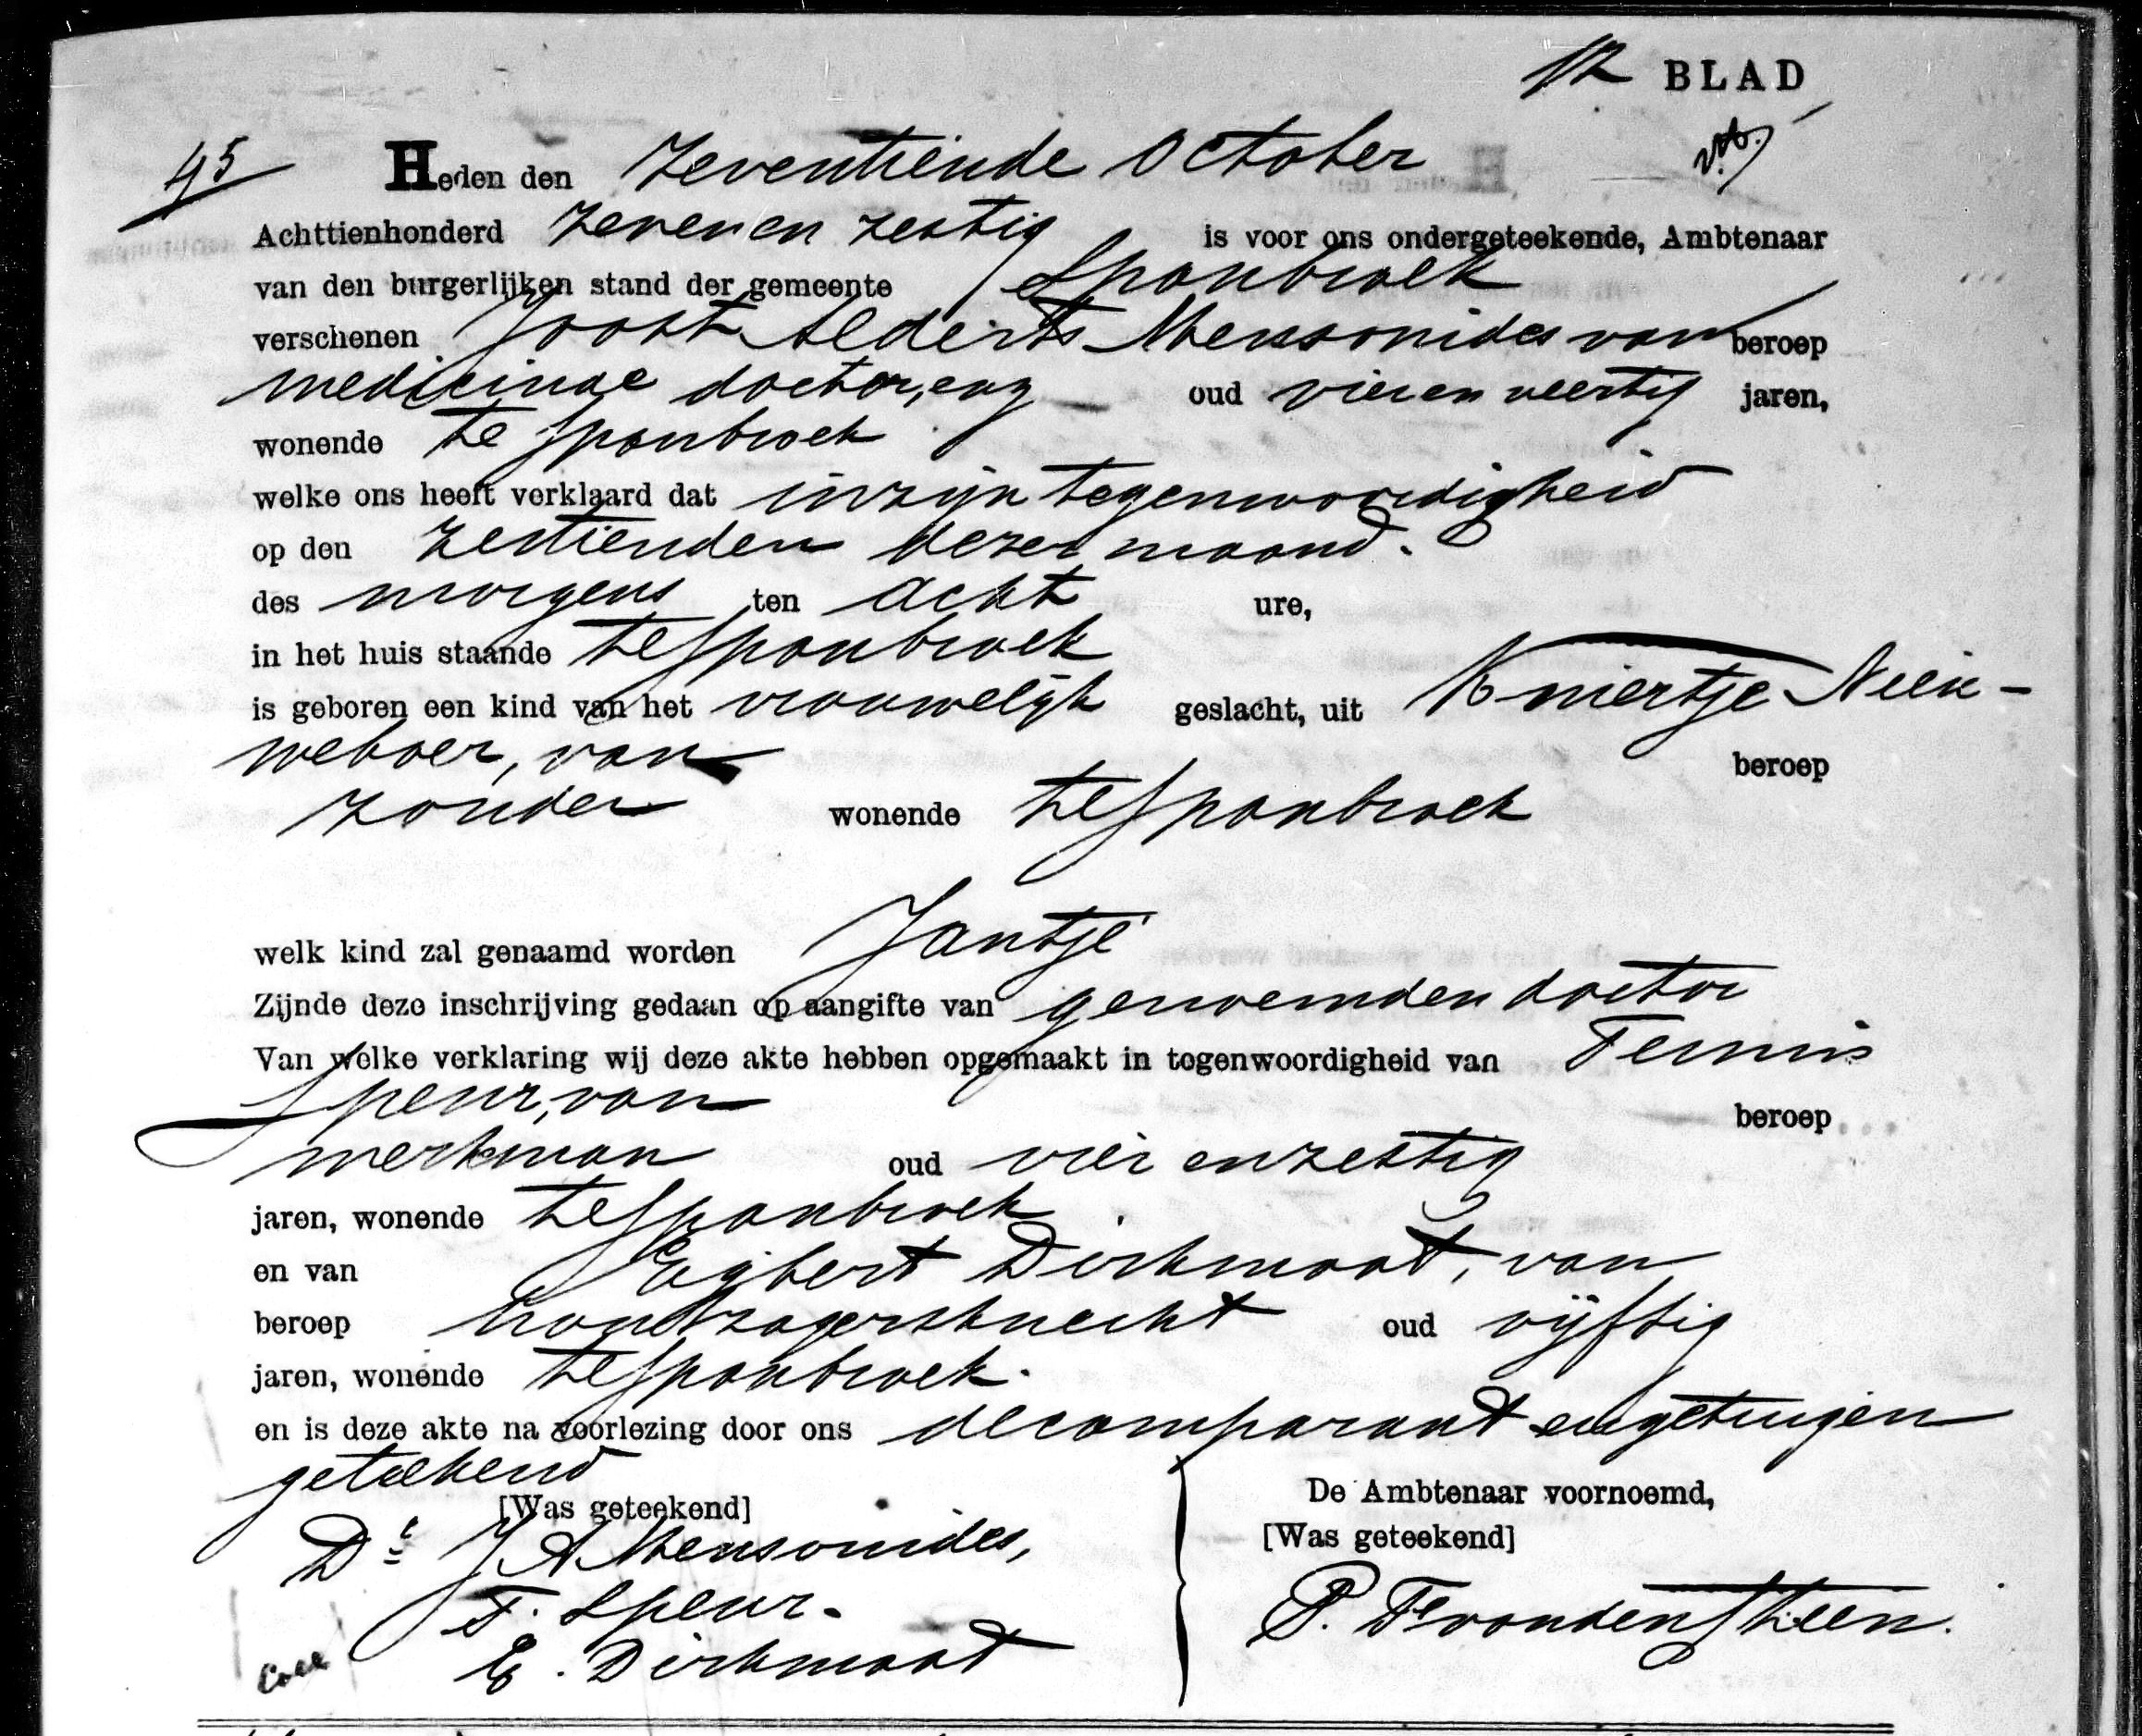 12 BLAD
45 Heden den Zeventiende October
Achttienhonderd zeven en zestig is voor ons ondergeteekende, Ambtenaar
van den burgerlijken stand der gemeente Spanbroek
verschenen Joost Alderts Mensonides van beroep
medicinae doctor, enz oud vier en veertig jaren,
wonende te Spanbroek
welke ons heeft verklaard dat in zijn tegenwoordigheid
op den zestienden dezer maand.
des morgens ten acht ure,
in het huis staande te Spanbroek
is geboren een kind van het vrouwelijk geslacht, uit Kniertje Nieu-
weboer, van beroep
zonder wonende te Spanbroek
welk kind zal genaamd worden Jantje
Zijnde deze inschrijving gedaan op aangifte van genoemden doctor
Van welke verklaring wij deze akte hebben opgemaakt in tegenwoordigheid van Teunis
Speur, van beroep
werkman oud vier en zestig
jaren, wonende te Spanbroek
en van Egbert Dirkmaat, van
beroep houtzagersknecht oud vijftig
jaren, wonende te Spanbroek.
en is deze akte na voorlezing door ons de comparant en getuigen
geteekend
[Was geteekend]
Dr J A Mensonides,
T. Speur.
E. Dirkmaat
De Ambtenaar voornoemd,
[Was geteekend]